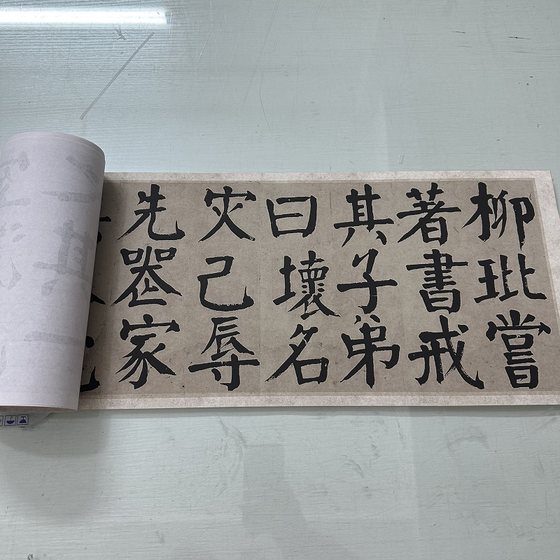 柳玭嘗
著書戒
其子弟
曰壞名
灾己辱
先喪家